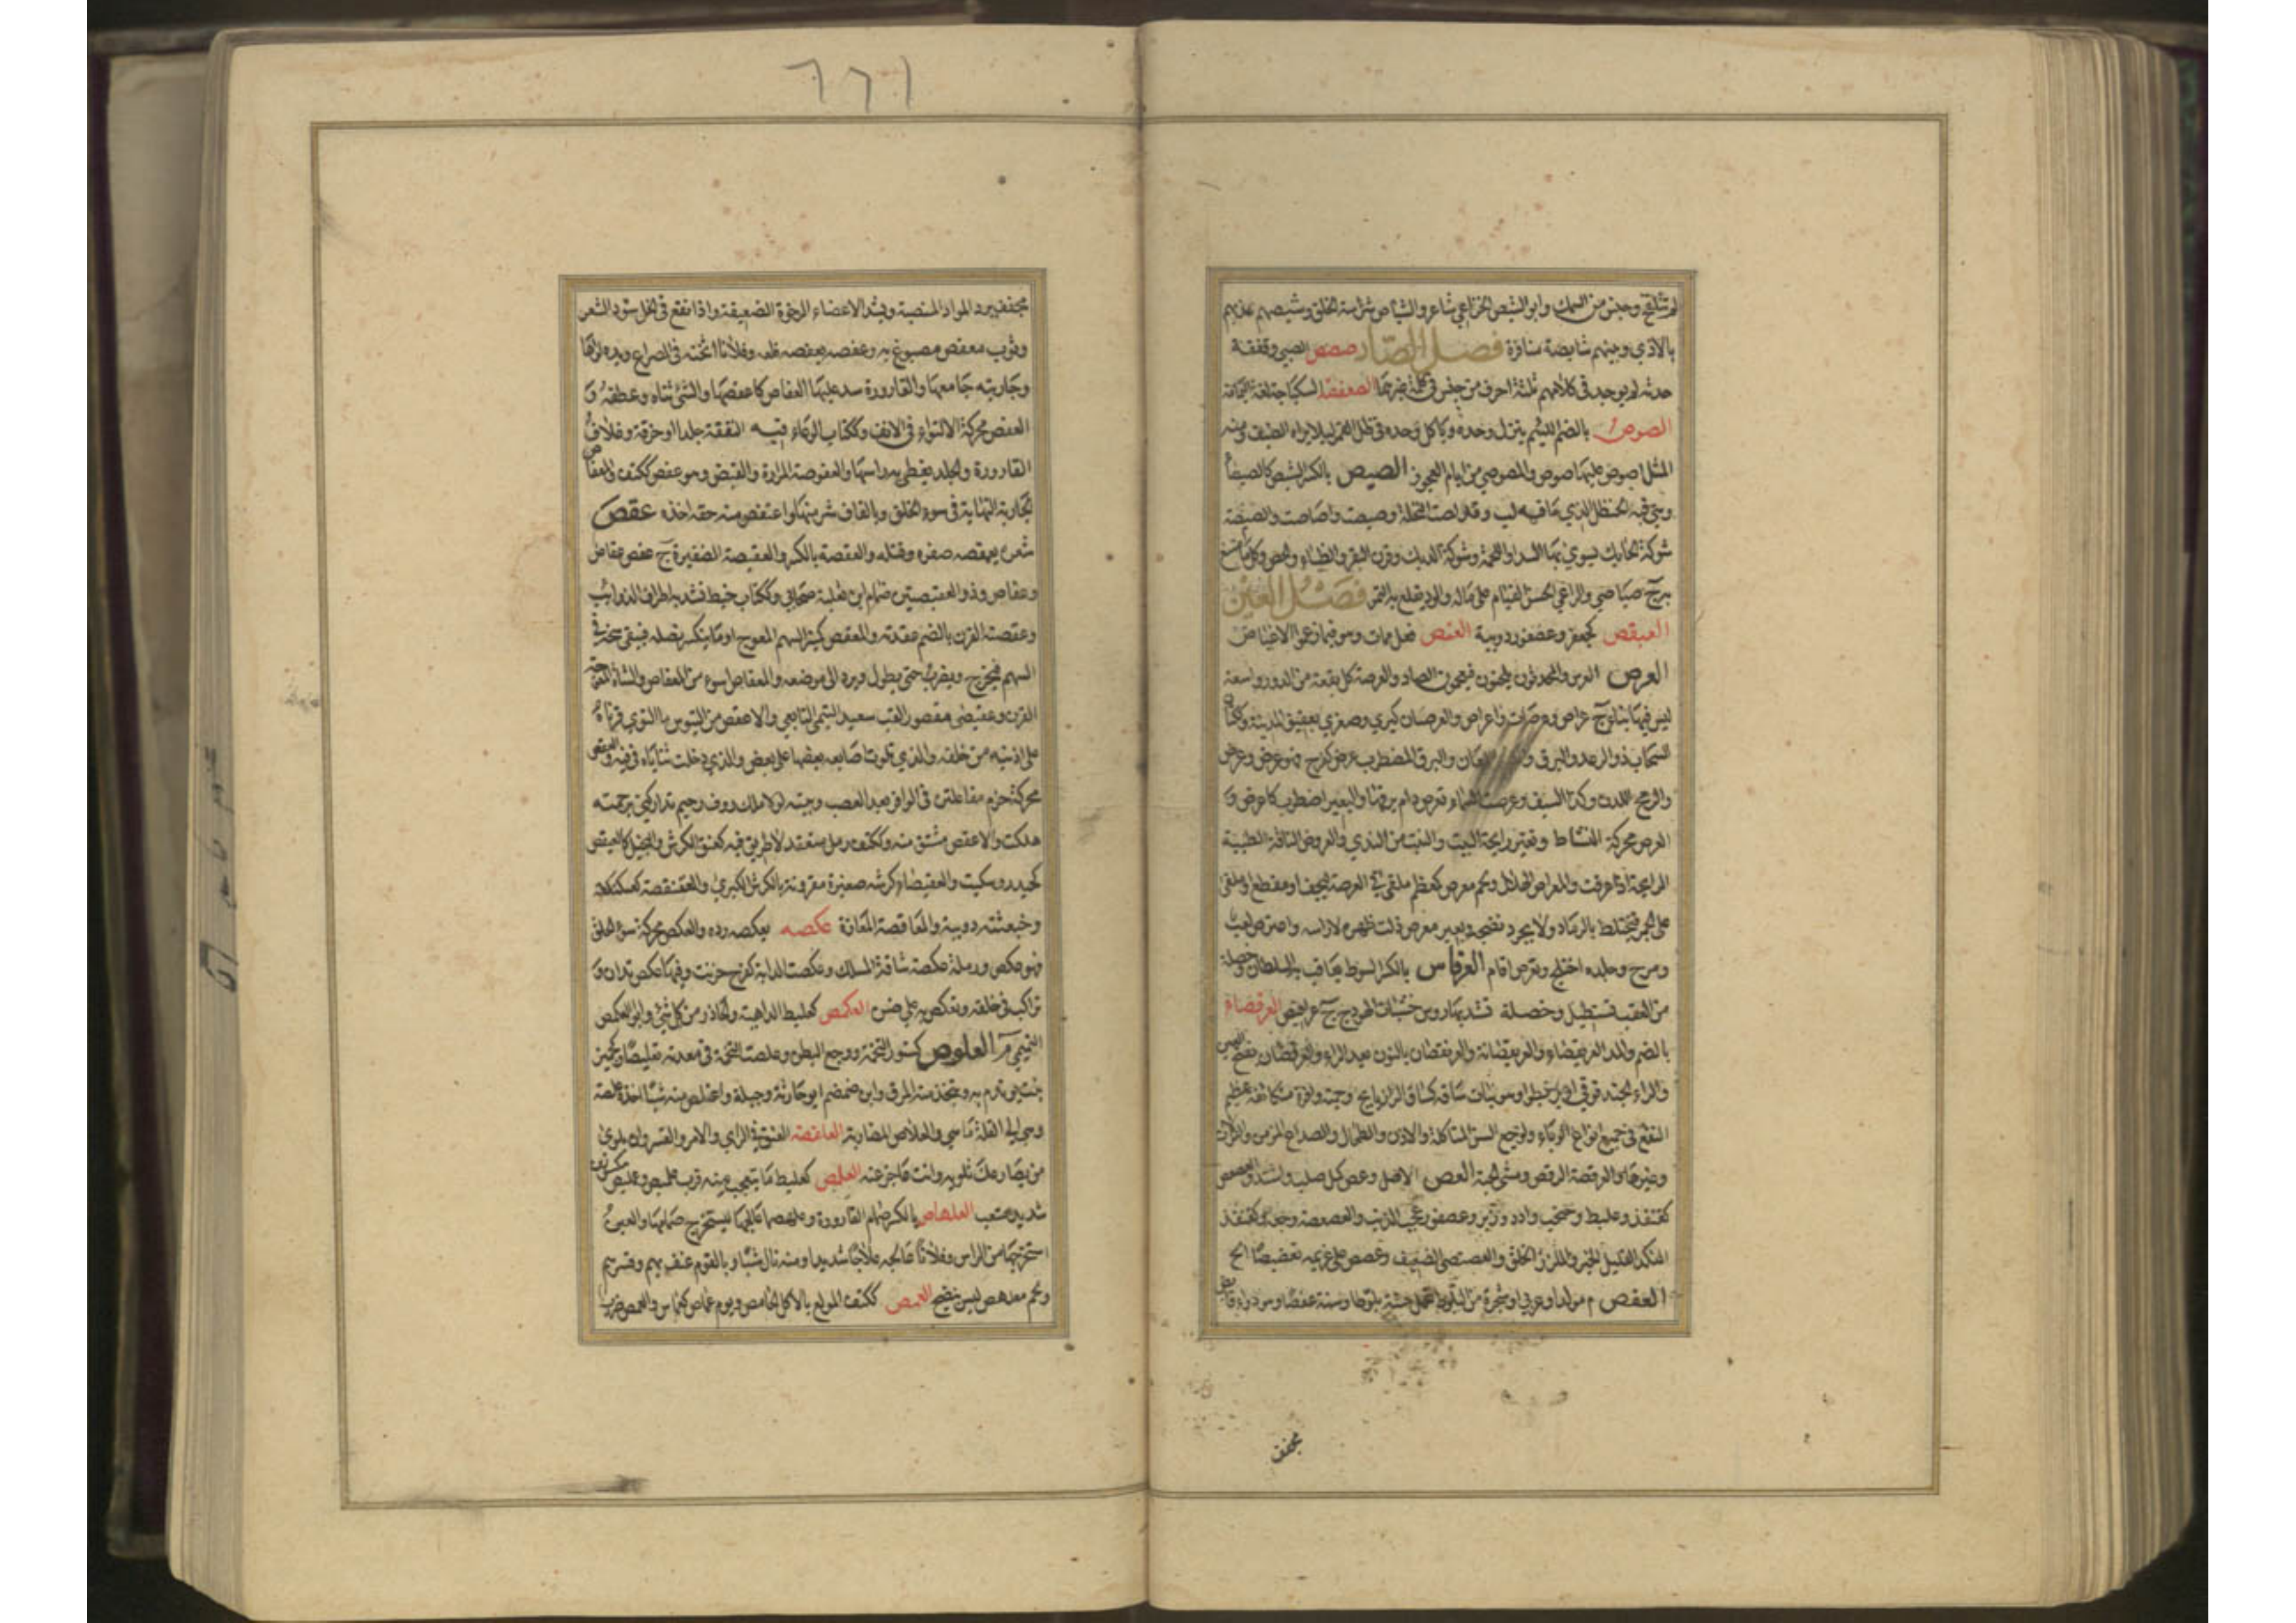 لم تتلقح وجنس من السمك وابو الشيص الخزاعي شاعر والشياص شراسة الخلق وشيصهم عذبهم
بالاذي وبينهم شايصة منافرة فصل الصاد صصص الصبي وققفقة
حدثه لم يوجد في كلامهم ثلثة احرف من جنس في كلمة غيرهما الصعفصة السكباجة لغة اليمامة
الصوص بالضم اللئيم ينزل وحده وياكل وحده في ظل القمر ليلا يراه الضيف ومنه
المثل اصوص عليها صوص والمصوص من ايام العجوز الصيص بالكسر الشيص كالصيصاء
وهي حب الحنظل الذي ما فيه لب وقد اصاصت النخلة وصيصت واصاصت والصيصة
شوكة الحايك يسوي بها السدا واللحمة وشوكة الديك وقرن البقر والظباء والحصن وكل ما امتنع
به ج صياصي والراعي الحسن القيام على ماله والود يقلع به التمر فصل العين
العبقص كجعفر وعصفور دويبة العنص فعل ممات وهو فيما زعموا الاعتياص
العرص العرس والمحدثون يلحنون فيعجمون الصاد والعرصة كل بقعة من الدور واسعة
ليس فيها بناء ج عراص وعرصات واعراص والعرصتان كبري وصغري بعقيق المدينة وككتان
السحاب ذو الرعد والبرق والبرق المضطرب عرص كفرح فهو عرص وعراص
والرمح اللدن وكذا السيف وعرصت السماء تعرص دام برقها والبعير اضطرب كاعرص و
العرص محركة النشاط وتغير رايحة البيت والنبت من الندي والعروض الناقة الطيبة
الرايحة اذا عرقت والمعراص الهلال ولحم معرص كمعظم ملقى في العرصة ليجف او مقطع او ملقى
على الجمر فيختلط بالرماد ولا يجود نضجه وبعير معرص ذلت ظهره لا راسه واعترص لعب
ومرح وجلده اختلج وتعرص اقام العرفاص بالكسر السوط يعاقب به السلطان وخصلة
من العقب تستطيل وخصلة تشد بها روس خشبات الهودج ج عرافيص العرقصاء
بالضم والمد العريقصاء والعريقصانة والعرنقصان بالنون بعد الراء والعرقصان بفتح العين
والراء الحندقوقي او هو نبات ساقه كساق الرازيانج وجمته وافرة متكاثفة عظيم
النفع في جميع انواع الوباء ولوجع السن المتاكلة والاذن والطحال والصداع المزمن والنزلات
وغيرها والعرقصة الرقص ومشي الحية العص الاصل وعص كمل صلب واشتد والعصعص
كقنفذ وعلبط وحبحب وادد وزبر وعصفور عجب الذنب والعصعصة وجعه وكقنفذ
النكد القليل الخير والملزز الخلق والعصعصي الضعيف وعصص على غريمه تعصيصا الح
العفص م مولد او عربي او شجرة من البلوط تحمل سنة بلوطا وسنة عفصا وهو دواء قابض
مجفف
٢٢١
مجفف يرد المواد المنصبة ويشد الاعضاء الرخوة الضعيفة واذا نقع في الخل سود الشعر
وثوب معفص مصبوغ به وعفصه يعفصه قلعه وفلانا اثخنه في الصراع ويده لواها
وجاريته جامعها والقارورة سد عليها العفاص كاعفصها والشئ ثناه وعطفه و
العفص محركة الالتواء في الانف وككتاب الوعاء فيه النفقة جلدا او خرقة وغلاف
القارورة والجلد يغطي به راسها والعفوصة المرارة والقبض وهو عفص ككتف والمعفاص
الجارية النهاية في سوء الخلق وبالقاف شر منها واعتفص منه حقه اخذه عقص
شعره يعقصه ضفره وفتله والعقصة بالكسر والعقيصة الضفيرة ج عقص عقاص
وعقاص وذو العقيصتين ضمام ابن ثعلبة صحابي وككتاب خيط تشد به اطراف الذوائب
وعقصة القرن بالضم عقدته والمعقص كمنبر السهم المعوج او ما ينكسر نصله فيبقى سنخه في
السهم فيخرج ويضرب حتى يطول ويرد الى موضعه والمعقاص اسوء من المعفاص والشاة المعوجة
القرن وعقيصى مقصورا لقب سعيد التيمي التابعي والاعقص من التيوس ما التوي قرناه
على اذنيه من خلفه والذي تلوت اصابعه بعضها على بعض والذي دخلت ثناياه في فيه والعقص
محركة خرم مفاعلتن في الوافر بعد العصب وبيته لولا ملك روف رحيم تداركني برحمته
هلكت والاعقص مشتق منه وككتف رمل متعقد لا طريق فيه كعنق الكرش والبخيل كالعيقص
كحيدر وسكيت والعقيصاء كرشة صغيرة مقرونة بالكرش الكبرى والعقنقصة كعكنكعة
وخبعثنة دويبة والمعاقصة المعازة عكصه يعكصه رده والعكص محركة سوء الخلق
فهو عكص ورملة عكصة شاقة المسلك وعكصت الدابة كفرح حزنت وفيها عكص تدان و
تراكب في خلقه وتعكص به علي ضن العكمص كعلبط الداهية والحادر من كل شئ وابو العكمص
التيمي م العلوص كسنور التخمة ووجع البطن وعلصت التخمة في معدته تعليصا وكجميز
نبت يؤتدم به ويتخذ منه المرق وابن ضمضم ابو حارثة وجبلة واعتلص منه شيئا اخذه علصة
وهي الى القلة ما هي والعلاص المضاربة العلفصة العنف في الراي والامر والقسر وان يلوي
من يصارعك تلويه وانت عاجز عنه العلمص كعلبط ما يتعجب منه قرب علمص وعلميص مكسرتين
شديد متعب العلهاص بالكسر صمام القارورة وعلهصها عالجها ليستخرج صمامها والعين
استخرجها من الراس وفلانا عالجه علاجا شديدا ومنه نال شيئا وبالقوم عنف بهم وقسرهم
ولحم معلهص ليس بنضيج العمص ككتف المولع باكل الحامض ويوم عماص كعماس والعمص ضرب